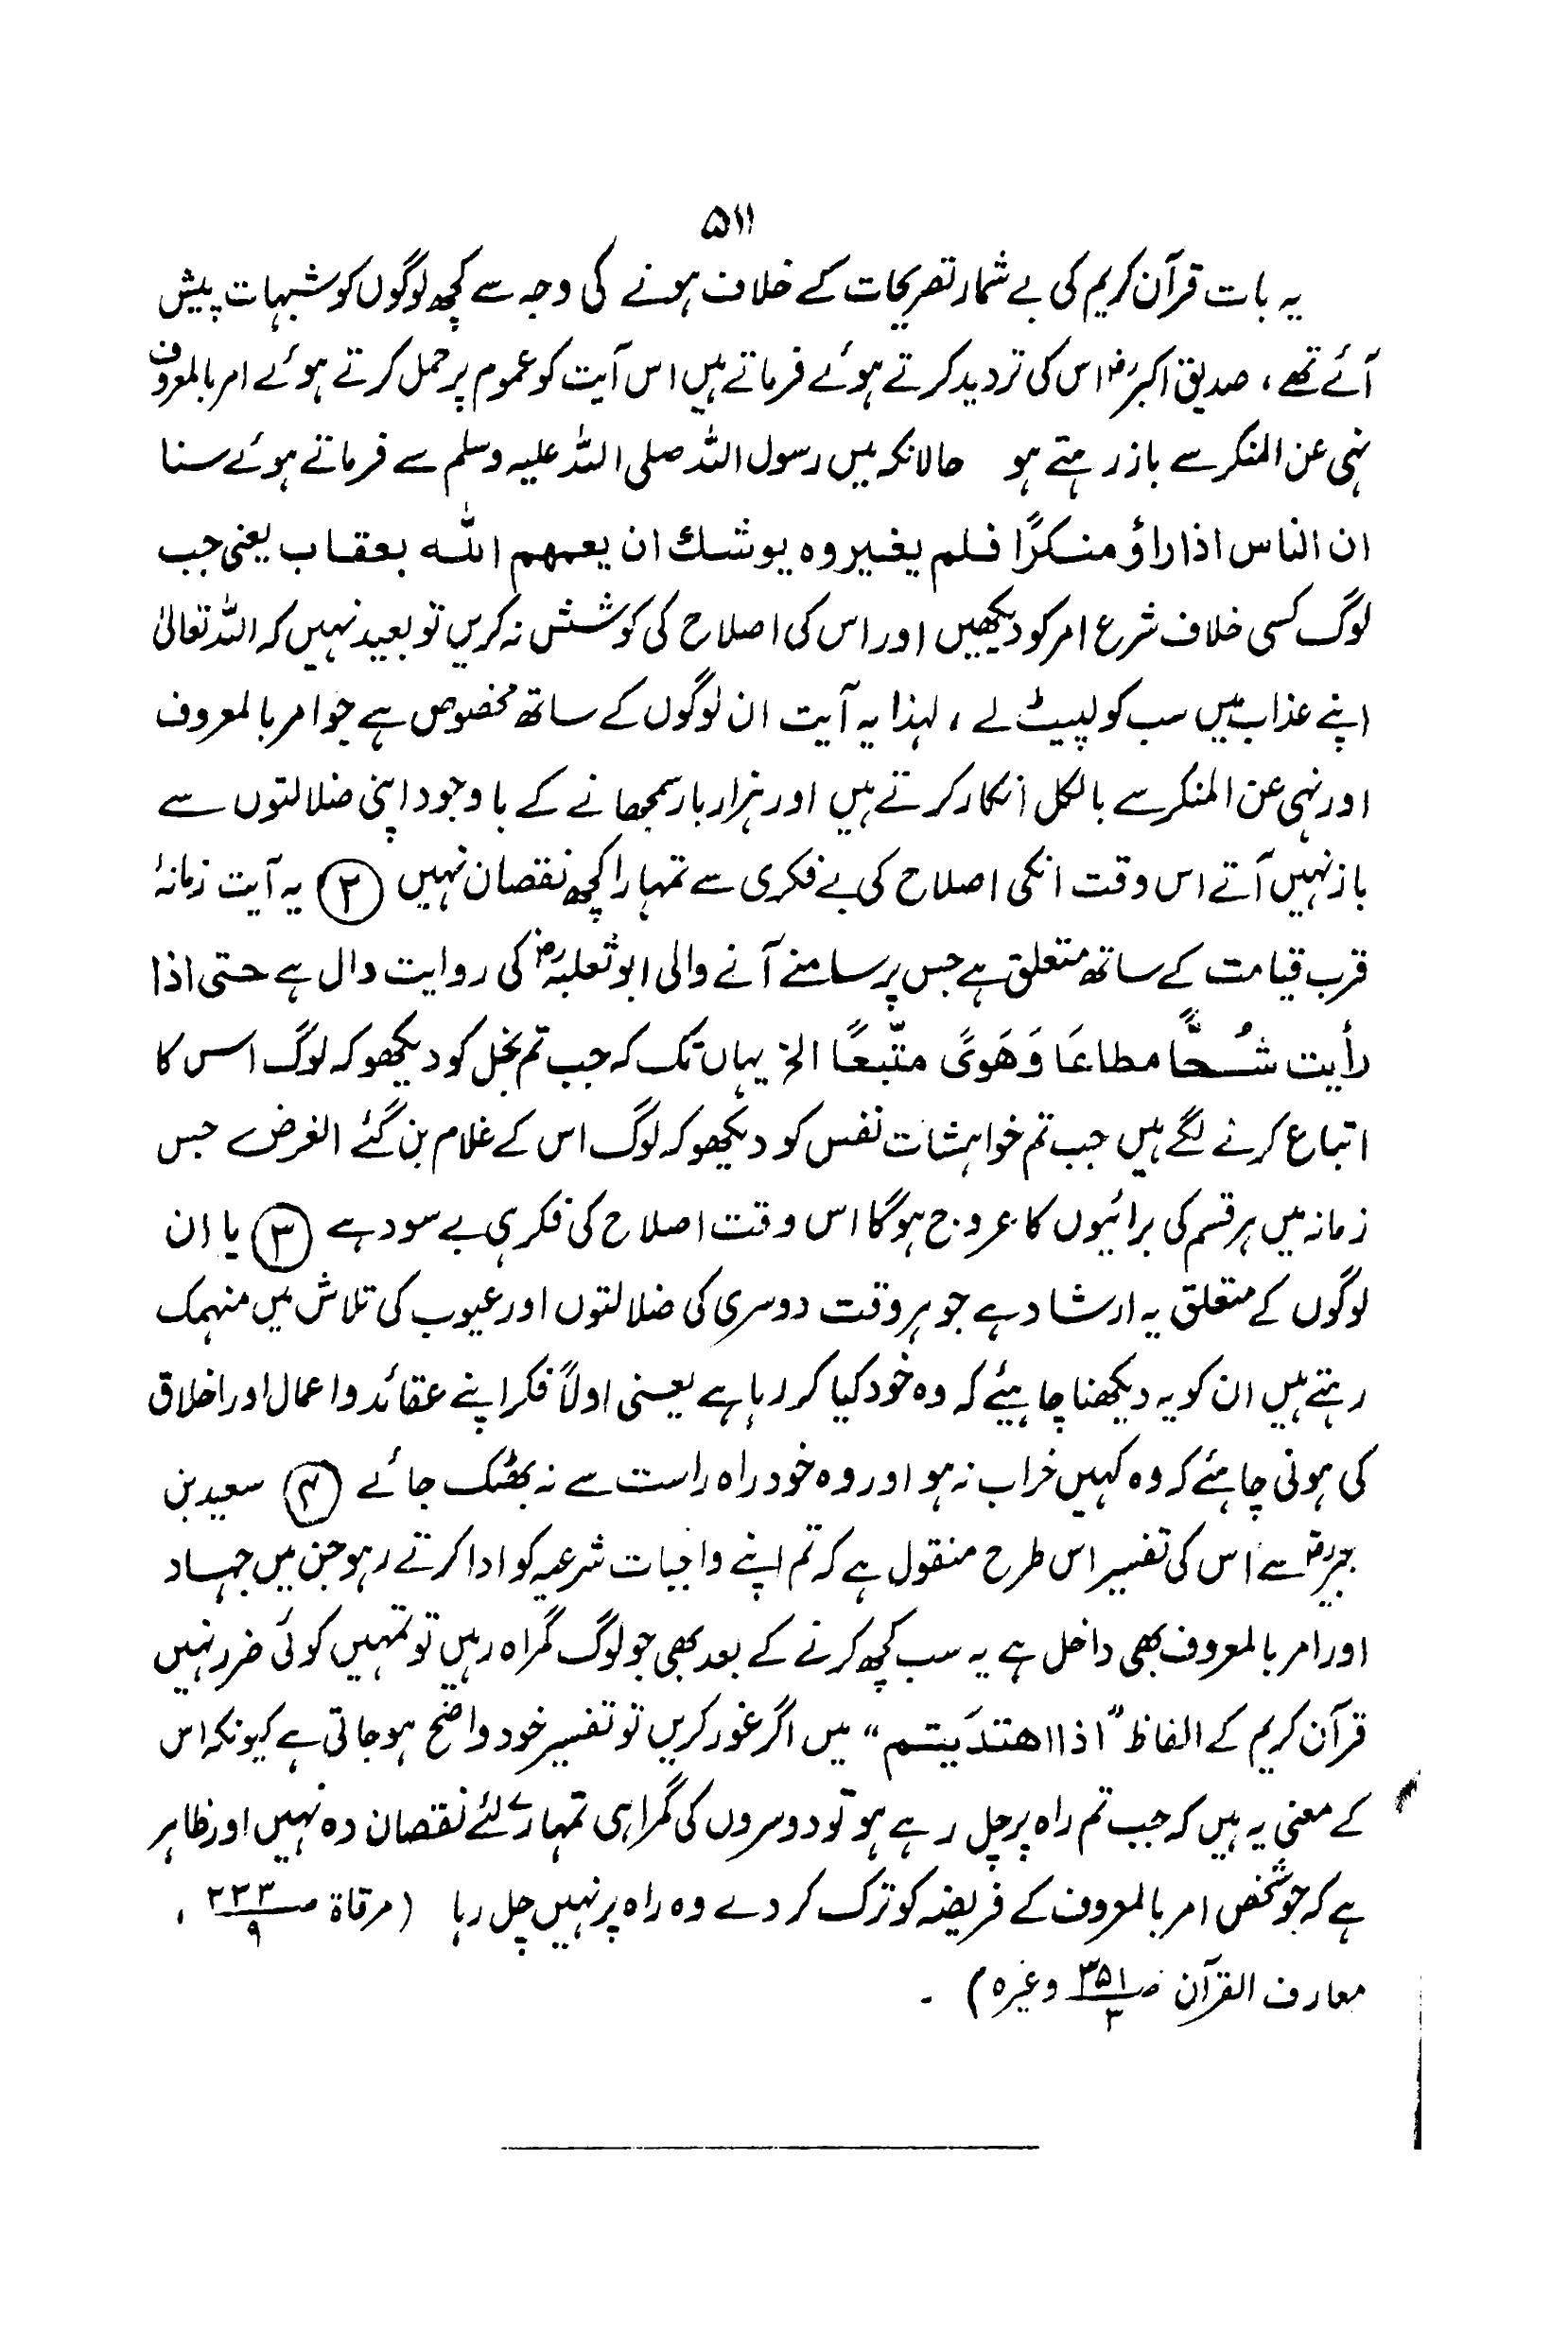 ۵۱۱
یہ بات قرآن کریم کی بے شمار تصریحات کے خلاف ہونے کی وجہ سے کچھ لوگوں کو شبہات پیش
آئے تھے ، صدیق اکبرؓ اس کی تردید کرتے ہوئے فرماتے ہیں اس آیت کو عموم پر حمل کرتے ہوئے امر بالمعروف
نہی عن المنکر سے باز رہتے ہو حالانکہ میں رسول اللہ صلی اللہ علیہ وسلم سے فرماتے ہوئے سنا
ان الناس اذا راؤ منکرًا فلم یغیروہ یوشك ان یعمھم اللہ بعقاب یعنی جب
لوگ کسی خلاف شرع امر کو دیکھیں اور اس کی اصلاح کی کوشش نہ کریں تو بعید نہیں کہ اللہ تعالیٰ
اپنے عذاب میں سب کو لپیٹ لے ، لہذا یہ آیت ان لوگوں کے ساتھ مخصوص ہے جو امر بالمعروف
اور نہی عن المنکر سے بالکل انکار کرتے ہیں اور ہزار بار سمجھانے کے باوجود اپنی ضلالتوں سے
باز نہیں آتے اس وقت انکی اصلاح کی بے فکری سے تمہارا کچھ نقصان نہیں (۲) یہ آیت زمانۂ
قرب قیامت کے ساتھ متعلق ہے جس پر سامنے آنے والی ابو ثعلبہؓ کی روایت دال ہے حتی اذا
رأیت شُحًّا مطاعًا وَھَویً متّبعًا الخ یہاں تک کہ جب تم بخل کو دیکھو کہ لوگ اس کا
اتباع کرنے لگے ہیں جب تم خواہشات نفس کو دیکھو کہ لوگ اس کے غلام بن گئے الغرض جس
زمانہ میں ہر قسم کی برائیوں کا عروج ہوگا اس وقت اصلاح کی فکر ہی بے سود ہے (۳) یا ان
لوگوں کے متعلق یہ ارشاد ہے جو ہر وقت دوسری کی ضلالتوں اور عیوب کی تلاش میں منہمک
رہتے ہیں ان کو یہ دیکھنا چاہیئے کہ وہ خود کیا کر رہا ہے یعنی اولاً فکر اپنے عقائد و اعمال اور اخلاق
کی ہونی چاہئے کہ وہ کہیں خراب نہ ہو اور وہ خود راہ راست سے نہ بھٹک جائے (۴) سعید بن
جبیرؓ سے اس کی تفسیر اس طرح منقول ہے کہ تم اپنے واجبات شرعیہ کو ادا کرتے رہو جن میں جہاد
اور امر بالمعروف بھی داخل ہے یہ سب کچھ کرنے کے بعد بھی جو لوگ گمراہ رہیں تو تمہیں کوئی ضرر نہیں
قرآن کریم کے الفاظ "اذا اھتدَیتم" میں اگر غور کریں تو تفسیر خود واضح ہو جاتی ہے کیونکہ اس
کے معنی یہ ہیں کہ جب تم راہ پر چل رہے ہو تو دوسروں کی گمراہی تمہارے لئے نقصان دہ نہیں اور ظاہر
ہے کہ جو شخص امر بالمعروف کے فریضہ کو ترک کر دے وہ راہ پر نہیں چل رہا (مرقاۃ صـ ۲۳۳/۹ ،
معارف القرآن صـ ۳۵۱/۳ وغیرہ) ۔